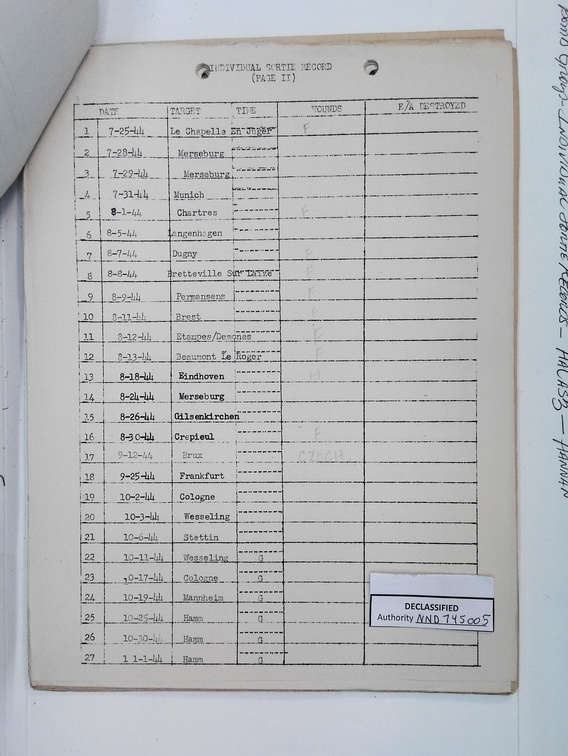 INDIVIDUAL SORTIE RECORD
(PAGE II)
DATE TARGET TIME WOUNDS E/A DESTROYED
1 7-25-44 Le Chapelle En Juger F
2 7-28-44 Merseburg
3 7-29-44 Merseburg
4 7-31-44 Munich
5 8-1-44 Chartres F
6 8-5-44 Langenhagen
7 8-7-44 Dugny F
8 8-8-44 Bretteville Sur Laize F
9 8-9-44 Permansens F
10 8-11-44 Brest F
11 8-12-44 Etampes/Demones F
12 8-13-44 Beaumont Le Roger F
13 8-18-44 Eindhoven H
14 8-24-44 Merseburg
15 8-26-44 Gilsenkirchen
16 8-30-44 Crepieul F
17 9-12-44 Brux CZECH.
18 9-25-44 Frankfurt
19 10-2-44 Cologne
20 10-3-44 Wesseling
21 10-6-44 Stettin
22 10-11-44 Wesseling G
23 10-17-44 Cologne G
24 10-19-44 Mannheim G
25 10-25-44 Hamm G
26 10-30-44 Hamm G
27 1 1-1-44 Hamm G
DECLASSIFIED
Authority NND 745005
Bomb Group - Individual Sortie Records - HALASZ - HANNAN